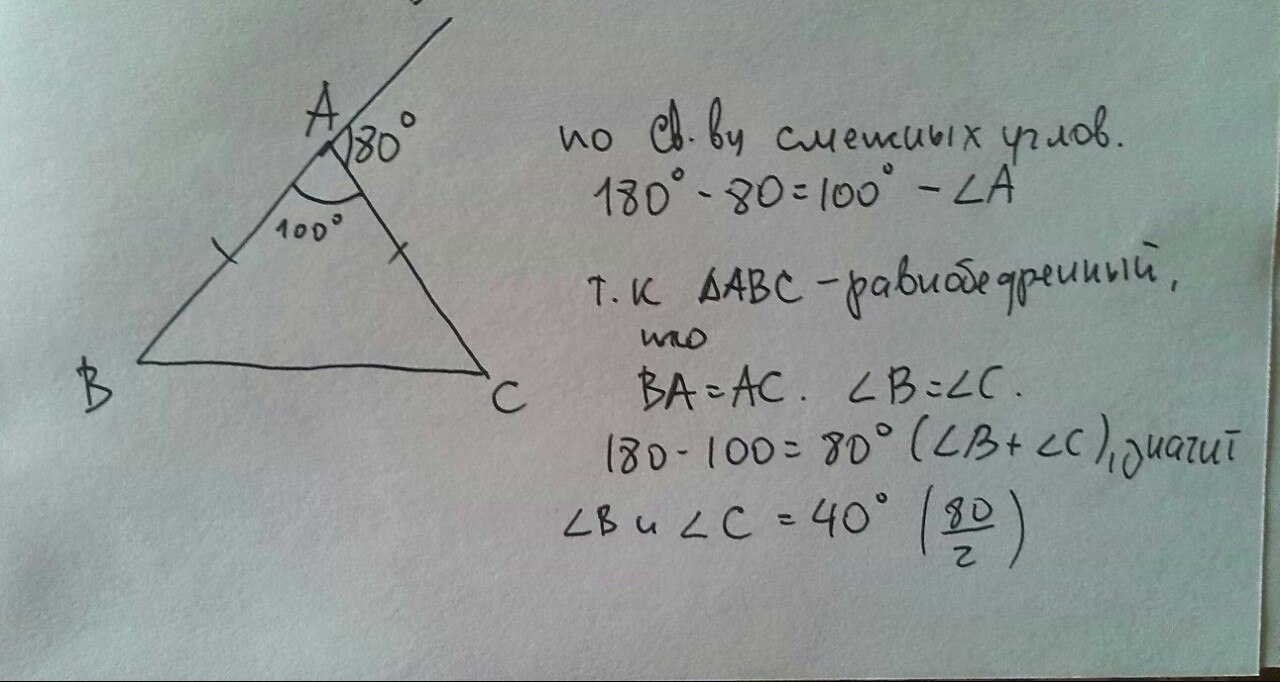 A
80°
100°
B
C
по св.ву смежных углов.
180° - 80 = 100° - ∠A
т.к ΔABC - равнобедренный,
то
BA = AC. ∠B = ∠C.
180 - 100 = 80° (∠B + ∠C), значит
∠B и ∠C = 40° (80/2)